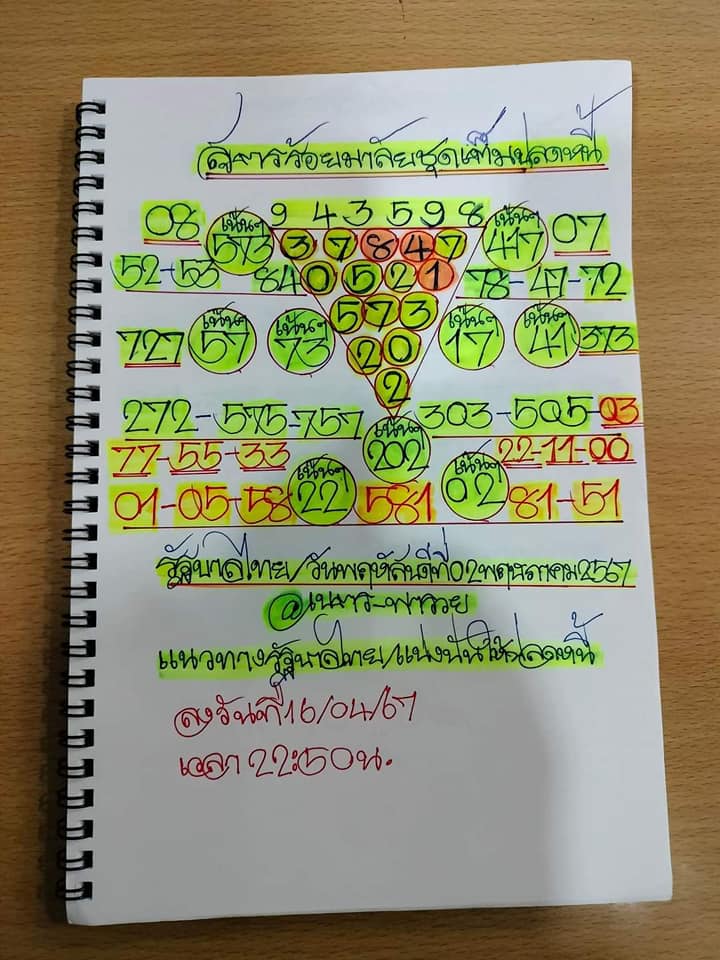 สูตรร้อยมาลัยชุดเต็มปลดหนี้
9 4 3 5 9 8
08 เน้นๆ 573 3 7 8 4 7 เน้นๆ 417 07
52-53 840 0 5 2 1 78-47-72
5 7 3
727 เน้นๆ 57 เน้นๆ 73 2 0 เน้นๆ 17 เน้นๆ 41 373
2
272-575-757 เน้นๆ 202 303-505-03
77-55-33 22-11-00
01-05-58 เน้นๆ 22 581 เน้นๆ 02 81-51
รัฐบาลไทย/วันพฤหัสบดีที่02พฤษภาคม2567
@เนการ-พารวย
แนวทางรัฐบาลไทย/แบ่งปันให้ปลดหนี้
ลงวันที่16/04/67
เวลา 22:50น.